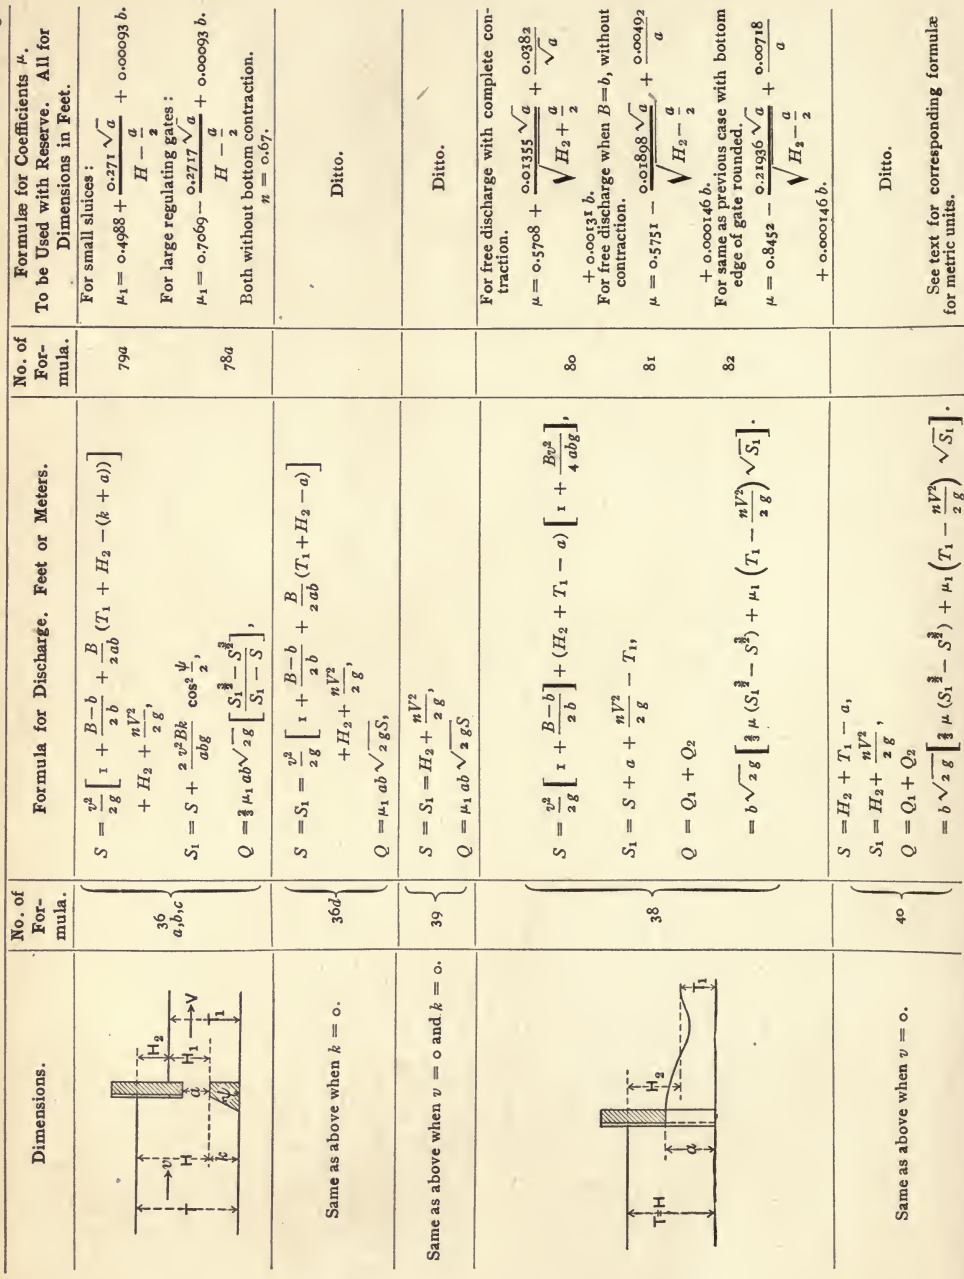 Dimensions.
No. of
For-
mula.
Formula for Discharge. Feet or Meters.
No. of
For-
mula.
Formulæ for Coefficients μ.
To be Used with Reserve. All for
Dimensions in Feet.
T
v
H
k
a
ψ
H₂
H₁
V
T₁
36
a,b,c
S = v²/2g [1 + (B−b)/2b + B/2ab (T₁ + H₂ −(k + a))]
+ H₂ + nV²/2g,
S₁ = S + 2v²Bk/abg cos² ψ/2,
Q = ⅔ μ₁ ab√2g [(S₁^{3/2} − S^{3/2})/(S₁ − S)],
79a
78a
For small sluices :
μ₁ = 0.4988 + 0.271 √a/(H − a/2) + 0.00093 b.
For large regulating gates :
μ₁ = 0.7069 − 0.2717 √a/(H − a/2) + 0.00093 b.
Both without bottom contraction.
n = 0.67.
Same as above when k = 0.
36d
S = S₁ = v²/2g [1 + (B−b)/2b + B/2ab (T₁+H₂−a)]
+ H₂ + nV²/2g,
Q = μ₁ ab √2gS,
Ditto.
Same as above when v = 0 and k = 0.
39
S = S₁ = H₂ + nV²/2g,
Q = μ₁ ab √2gS
Ditto.
T=H
a
H₂
T₁
38
S = v²/2g [1 + (B−b)/2b] + (H₂ + T₁ − a) [1 + Bv²/4abg],
S₁ = S + a + nV²/2g − T₁,
Q = Q₁ + Q₂
= b√2g [⅔ μ (S₁^{3/2} − S^{3/2}) + μ₁ (T₁ − nV²/2g) √S₁].
80
81
82
For free discharge with complete con-
traction.
μ = 0.5708 + 0.01355 √a/√(H₂ + a/2) + 0.0382/√a
+ 0.00131 b.
For free discharge when B=b, without
contraction.
μ = 0.5751 − 0.01898 √a/√(H₂ − a/2) + 0.00492/a
+ 0.000146 b.
For same as previous case with bottom
edge of gate rounded.
μ = 0.8452 − 0.21936 √a/√(H₂ − a/2) + 0.00718/a
+ 0.000146 b.
Same as above when v = 0.
40
S = H₂ + T₁ − a,
S₁ = H₂ + nV²/2g,
Q = Q₁ + Q₂
= b√2g [⅔ μ (S₁^{3/2} − S^{3/2}) + μ₁ (T₁ − nV²/2g) √S₁].
Ditto.
See text for corresponding formulæ
for metric units.